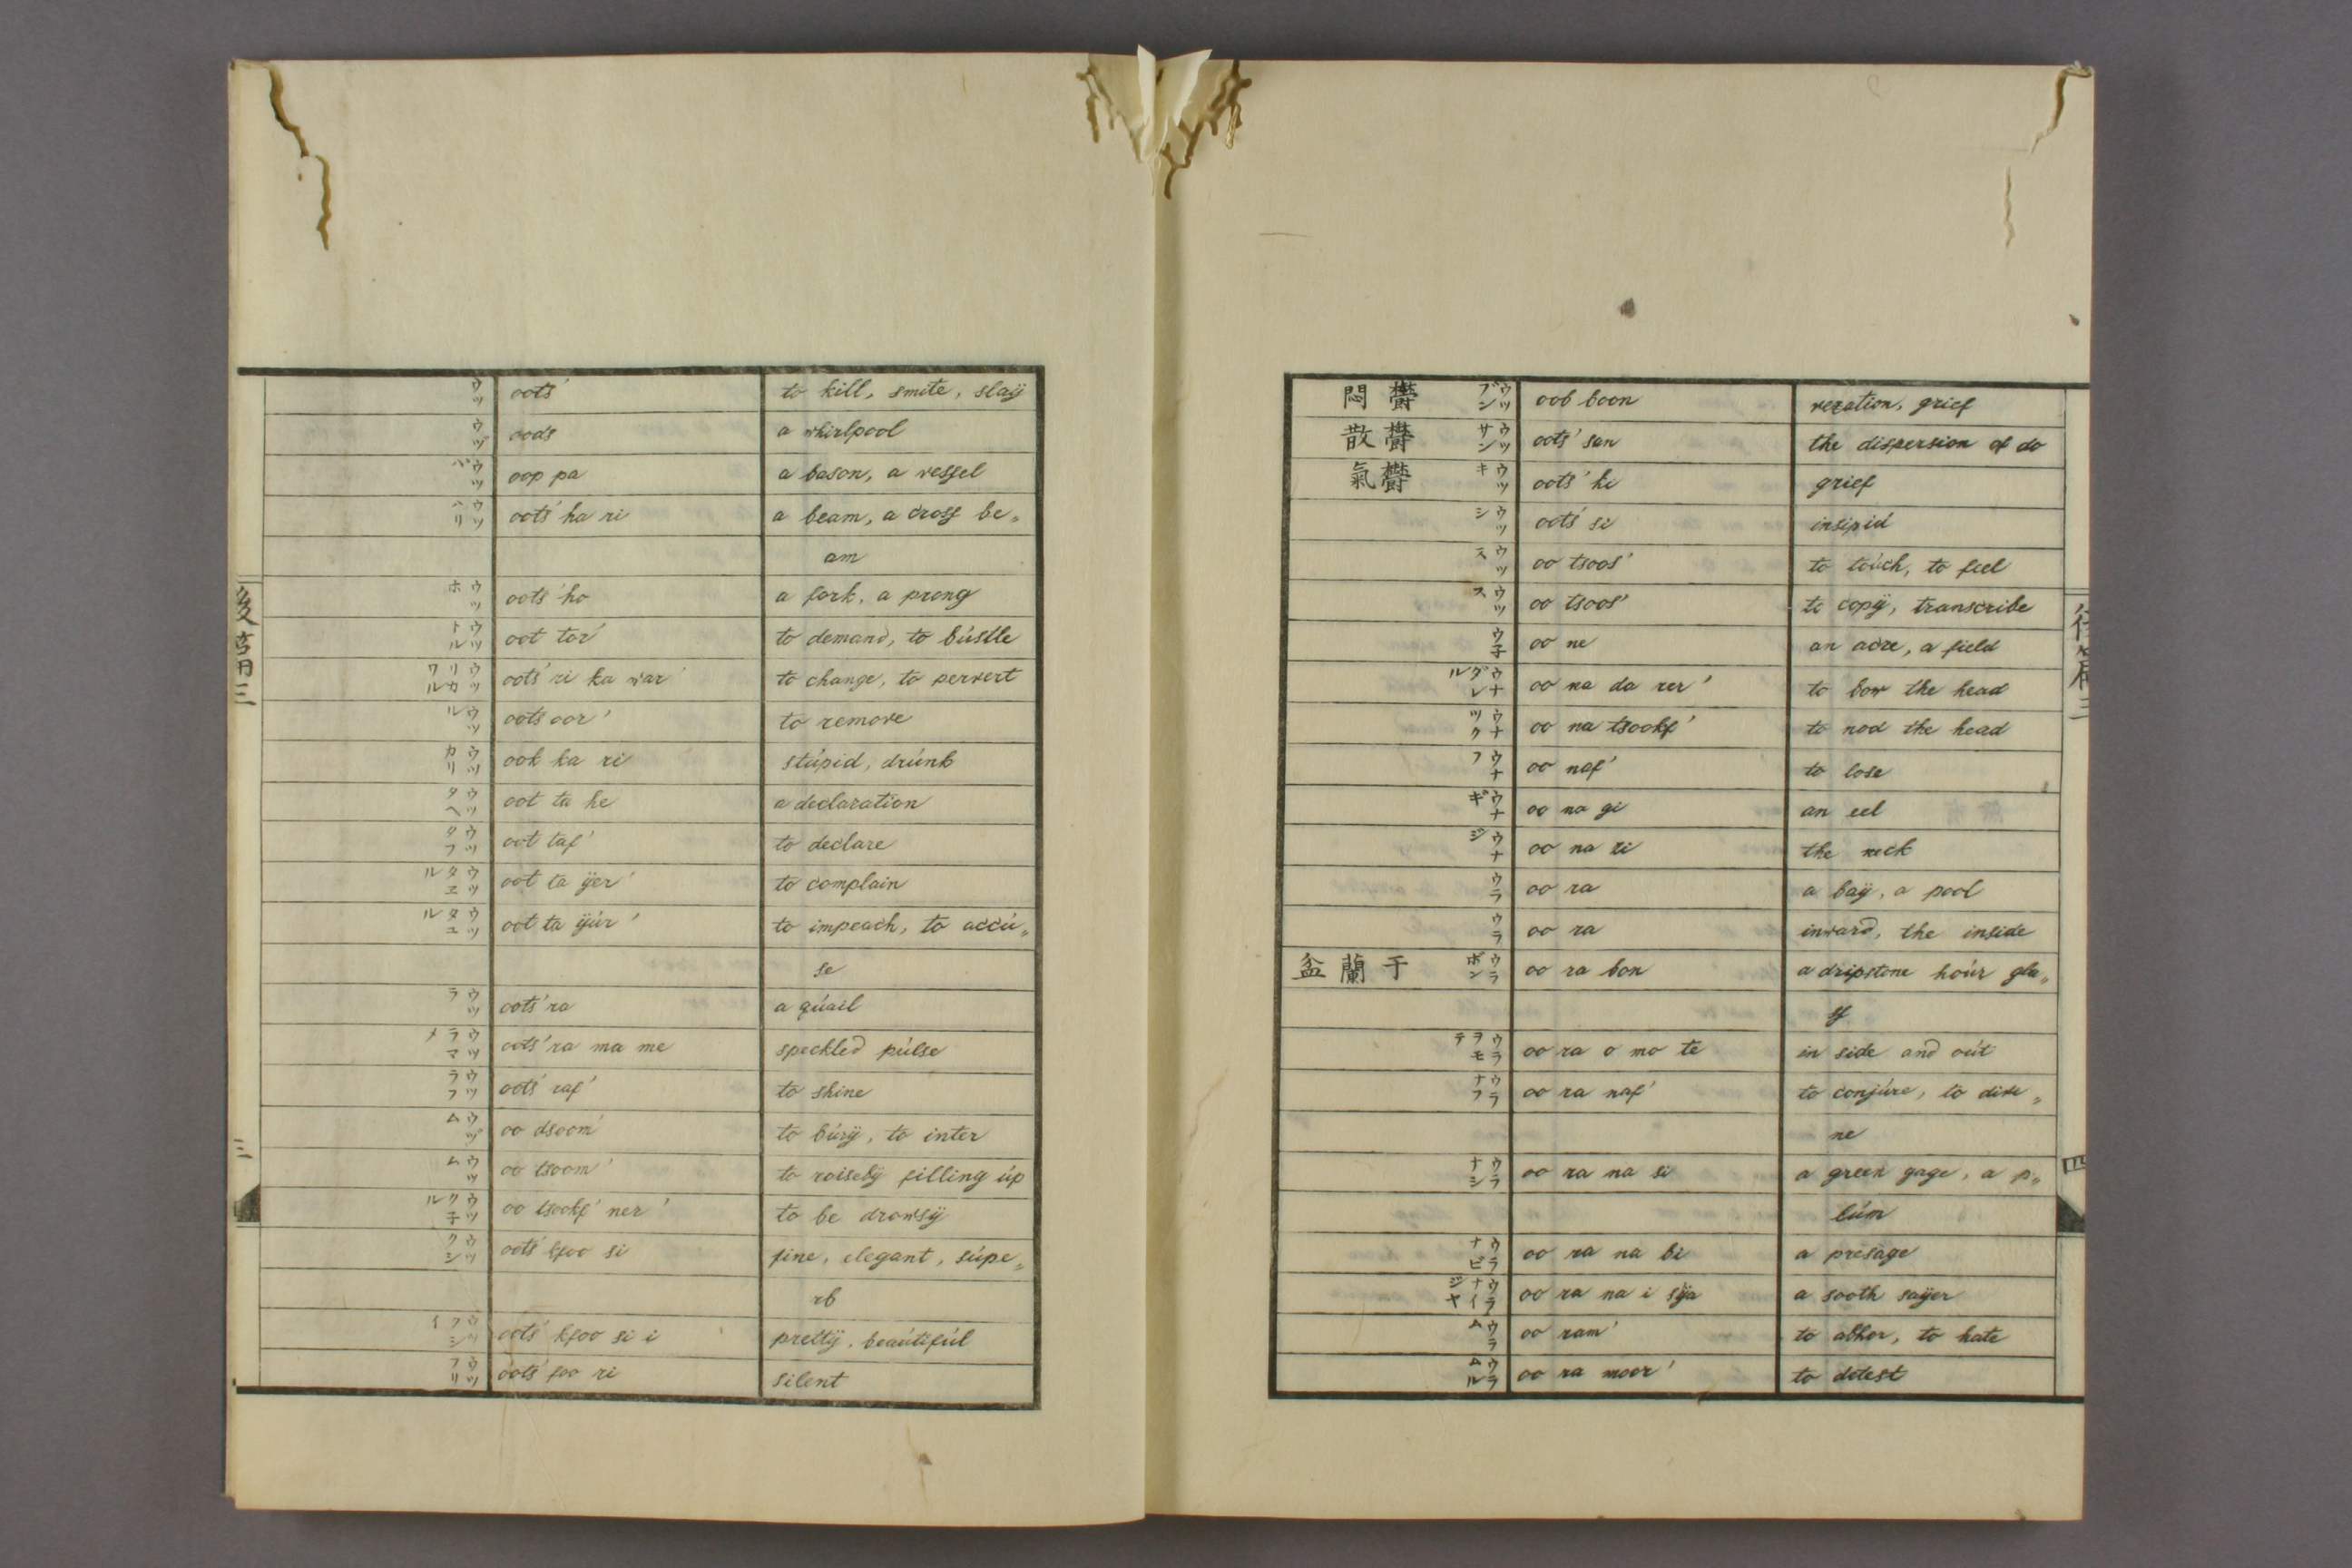 ウツ oots' to kill, smite, slaÿ
ウヅ oods a whirlpool
ウツパ oop pa a bason, a vessel
ウツハリ oots' ha ri a beam, a cross be„
am
ウツホ oots' ho a fork, a prong
ウツトル oot tor' to demand, to bústle
ウツリカワル oots' ri ka war' to change, to pervert
ウツル oots oor' to remove
ウツカリ ook ka ri stúpid, drúnk
ウツタヘ oot ta he a declaration
ウツタフ oot taf' to declare
ウツタヱル oot ta ÿer' to complain
ウツタユル oot ta ÿúr' to impeach, to accú„
se
ウツラ oots' ra a qúail
ウツラマメ oots' ra ma me speckled púlse
ウツラフ oots' raf' to shine
ウヅム oo dsoom' to búrÿ, to inter
ウツム oo tsoom' to raisebÿ filling úp
ウツク子ル oo tsookf' ner' to be drowsÿ
ウツクシ oots' kfoo si fine, elegant, súpe„
rb
ウツクシイ oots' kfoo si i prettÿ, beaútifúl
ウツフリ oots' foo ri silent
三
欝悶 ウツブン oob boon vexation, grief
欝散 ウツサン oots' san the dispersion of do
欝氣 ウツキ oots' ki grief
ウツシ oots' si insipid
ウツス oo tsoos' to toúch, to feel
ウツス oo tsoos' to copÿ, transcribe
ウ子 oo ne an acre, a field
ウナダレル oo na da rer' to bow the head
ウナツク oo na tsookf' to nod the head
ウナフ oo naf' to lose
ウナギ oo na gi an eel
ウナジ oo na zi the neck
ウラ oo ra a baÿ, a pool
ウラ oo ra inward, the inside
于蘭盆 ウラボン oo ra bon a dripstone hoúr gla„
ss
ウラヲモテ oo ra o mo te in side and oút
ウラナフ oo ra naf' to conjúre, to divi„
ne
ウラナシ oo ra na si a green gage, a p„
lúm
ウラナビ oo ra na bi a presage
ウラナイジヤ oo ra na i sÿa a sooth saÿer
ウラム oo ram' to abhor, to hate
ウラムル oo ra moor' to detest
四